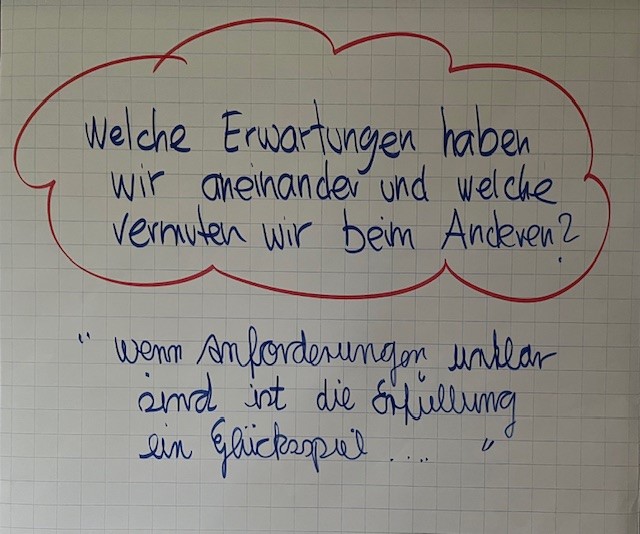 Welche Erwartungen haben
wir aneinander und welche
vermuten wir beim Anderen?
" wenn Anforderungen unklar
sind ist die Erfüllung
ein Glücksspiel .... "